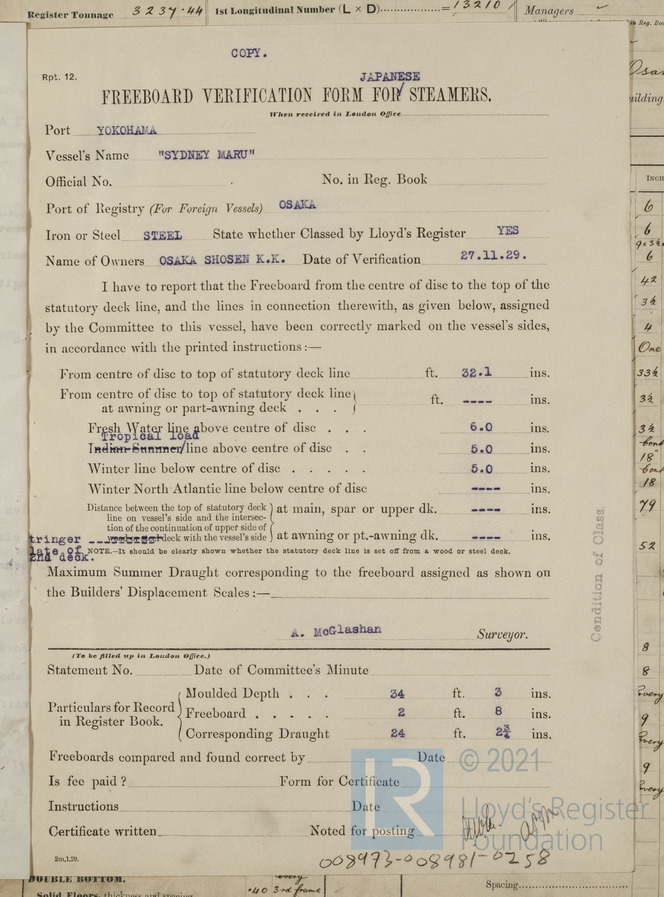 Register Tonnage 3237.44 1st Longitudinal Number (L × D) = 13210 Managers
COPY.
Rpt. 12.
JAPANESE
FREEBOARD VERIFICATION FORM FOR/ STEAMERS.
When received in London Office
Port YOKOHAMA
Vessel's Name "SYDNEY MARU"
Official No. No. in Reg. Book
Port of Registry (For Foreign Vessels) OSAKA
Iron or Steel STEEL State whether Classed by Lloyd's Register YES
Name of Owners OSAKA SHOSEN K.K. Date of Verification 27.11.29.
I have to report that the Freeboard from the centre of disc to the top of the
statutory deck line, and the lines in connection therewith, as given below, assigned
by the Committee to this vessel, have been correctly marked on the vessel's sides,
in accordance with the printed instructions:—
From centre of disc to top of statutory deck line ft. 32.1 ins.
From centre of disc to top of statutory deck line
at awning or part-awning deck . . . ft. ---- ins.
Fresh Water line above centre of disc . . . 6.0 ins.
Tropical load
Indian Summer/line above centre of disc . . 5.0 ins.
Winter line below centre of disc . . . . . 5.0 ins.
Winter North Atlantic line below centre of disc ---- ins.
Distance between the top of statutory deck
line on vessel's side and the intersec-
tion of the continuation of upper side of
deck with the vessel's side
at main, spar or upper dk. ---- ins.
at awning or pt.-awning dk. ---- ins.
tringer
late of
2nd deck.
NOTE.—It should be clearly shown whether the statutory deck line is set off from a wood or steel deck.
Maximum Summer Draught corresponding to the freeboard assigned as shown on
the Builders' Displacement Scales:—
A. McGlashan Surveyor.
(To be filled up in London Office.)
Statement No. Date of Committee's Minute
Particulars for Record
in Register Book.
Moulded Depth . . . 34 ft. 3 ins.
Freeboard . . . . . 2 ft. 8 ins.
Corresponding Draught 24 ft. 2¾ ins.
Freeboards compared and found correct by Date
Is fee paid? Form for Certificate
Instructions Date
Certificate written Noted for posting
2m,1,29.
008973-008981-0258
Condition of Class.
LR
© 2021
Lloyd's Register
Foundation
DOUBLE BOTTOM.
Solid Floors, thickness and spacing
every
.40 3rd frame
Spacing
INCH
6
6
6
42
3½
4
One
33½
3½
3½
18"
18
79
52
8
8
every
9
every
9
every